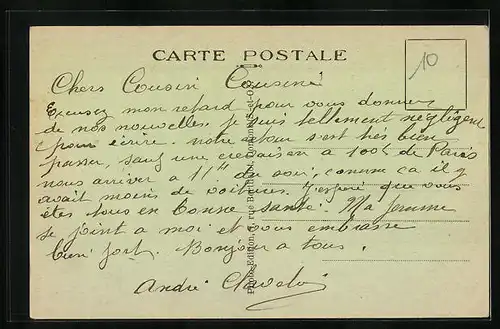 CARTE POSTALE
10
Chers Cousin Cousine
Excusez mon retard pour vous donner
de nos nouvelles je suis tellement négligent
pour écrire. notre retour s'est très bien
passer, sauf une crevaison a 100k de Paris
nous arriver a 11h du soir, comme ca il y
avait moins de voitures. J'espère que vous
êtes tous en bonne santé. Ma femme
se joint a moi et vous embrasse
bien fort. Bonjour a tous.
André